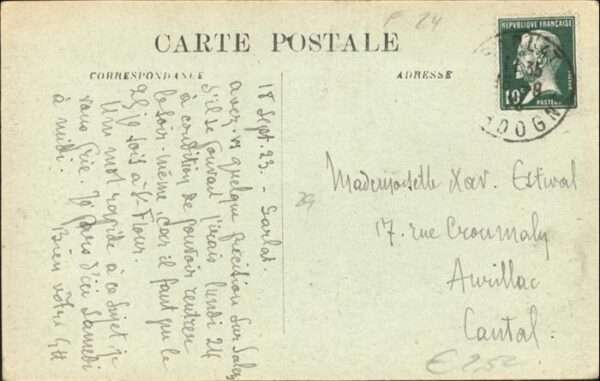 F 24
CARTE POSTALE
CORRESPONDANCE
ADRESSE
REPUBLIQUE FRANÇAISE
10c
POSTES
DOGN
18 Sept. 23. – Sarlat.
avez-vs quelque précision sur Salers
s'il se pouvait j'irais lundi 24
à condition de pouvoir rentrer
le soir-même, car il faut que le
25 je sois à St-Flour.
Un mot rapide à ce sujet je
vous prie. Je pars d'ici Samedi
à midi.
Bien vôtre
Mademoiselle Xav. Estival
17. rue Croumaly
Aurillac
Cantal.
29
€ 2,50